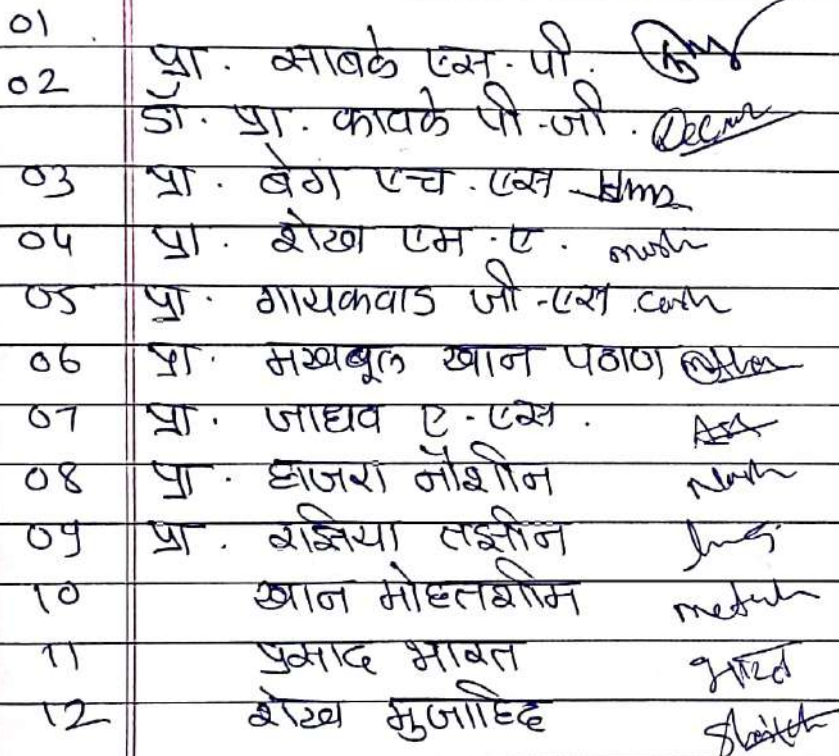 01 प्रा. साबळे एस.पी.
02 डॉ. प्रा. कावळे पी.जी.
03 प्रा. बेग एच.एस
04 प्रा. शेख एम.ए.
05 प्रा. गायकवाड जी.एस.
06 प्रा. मखबूल खान पठाण
07 प्रा. जाधव ए.एस.
08 प्रा. हाजरा नौशीन
09 प्रा. तझीन
10 खान मोहतशीम
11 प्रसाद भारत भारत
12 शेख मुजाहिद